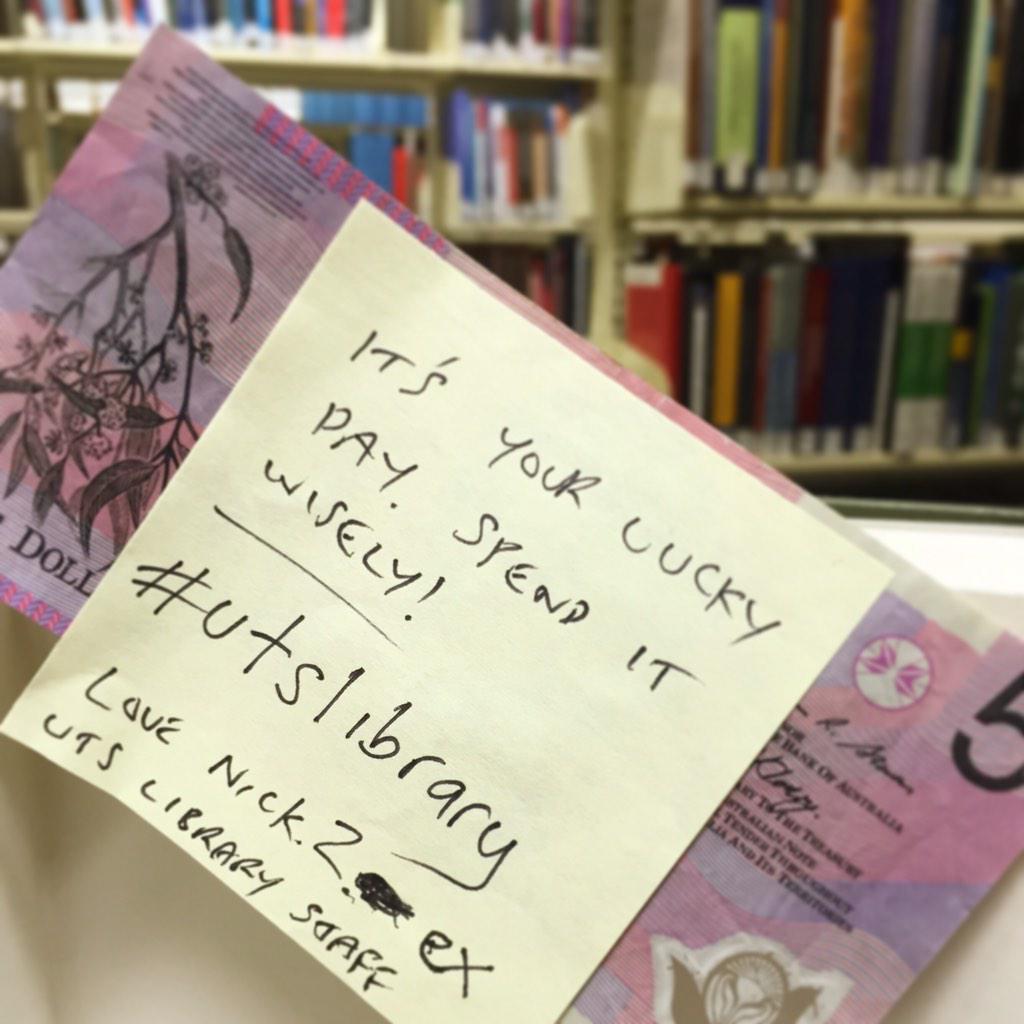 IT'S YOUR LUCKY
DAY. SPEND IT
WISELY!
#utslibrary
LOVE NICK. Z. EX
UTS LIBRARY STAFF
DOLL
5
BANK OF AUSTRALIA
TO THE TREASURY
AUSTRALIAN NOTE
TENDER THROUGHOUT
AND ITS TERRITORIES